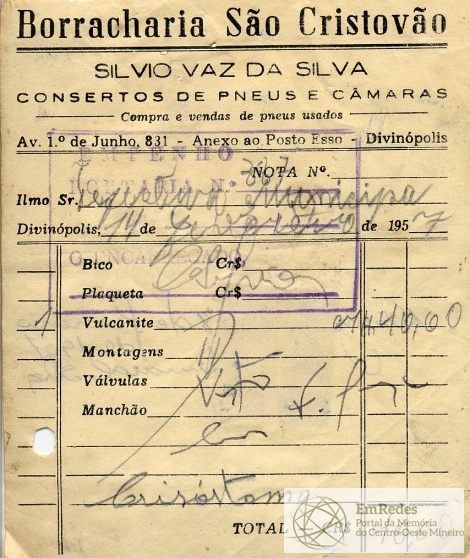 Borracharia São Cristovão
SILVIO VAZ DA SILVA
CONSERTOS DE PNEUS E CÂMARAS
Compra e vendas de pneus usados
Av. 1.º de Junho, 831 - Anexo ao Posto Esso - Divinópolis
EMPENHO
NOTA Nº.
PORTARIA N.º
Ilmo Sr. Prefeitura Municipa
Divinópolis, 14 de de 1957
O ENCARREGADO
Bico Cr$
Plaqueta Cr$
1 Vulcanite 40,00
Montagens
Válvulas
Manchão
Crisóstomo
TOTAL CR$
EmRedes
Portal da Memória
do Centro-Oeste Mineiro